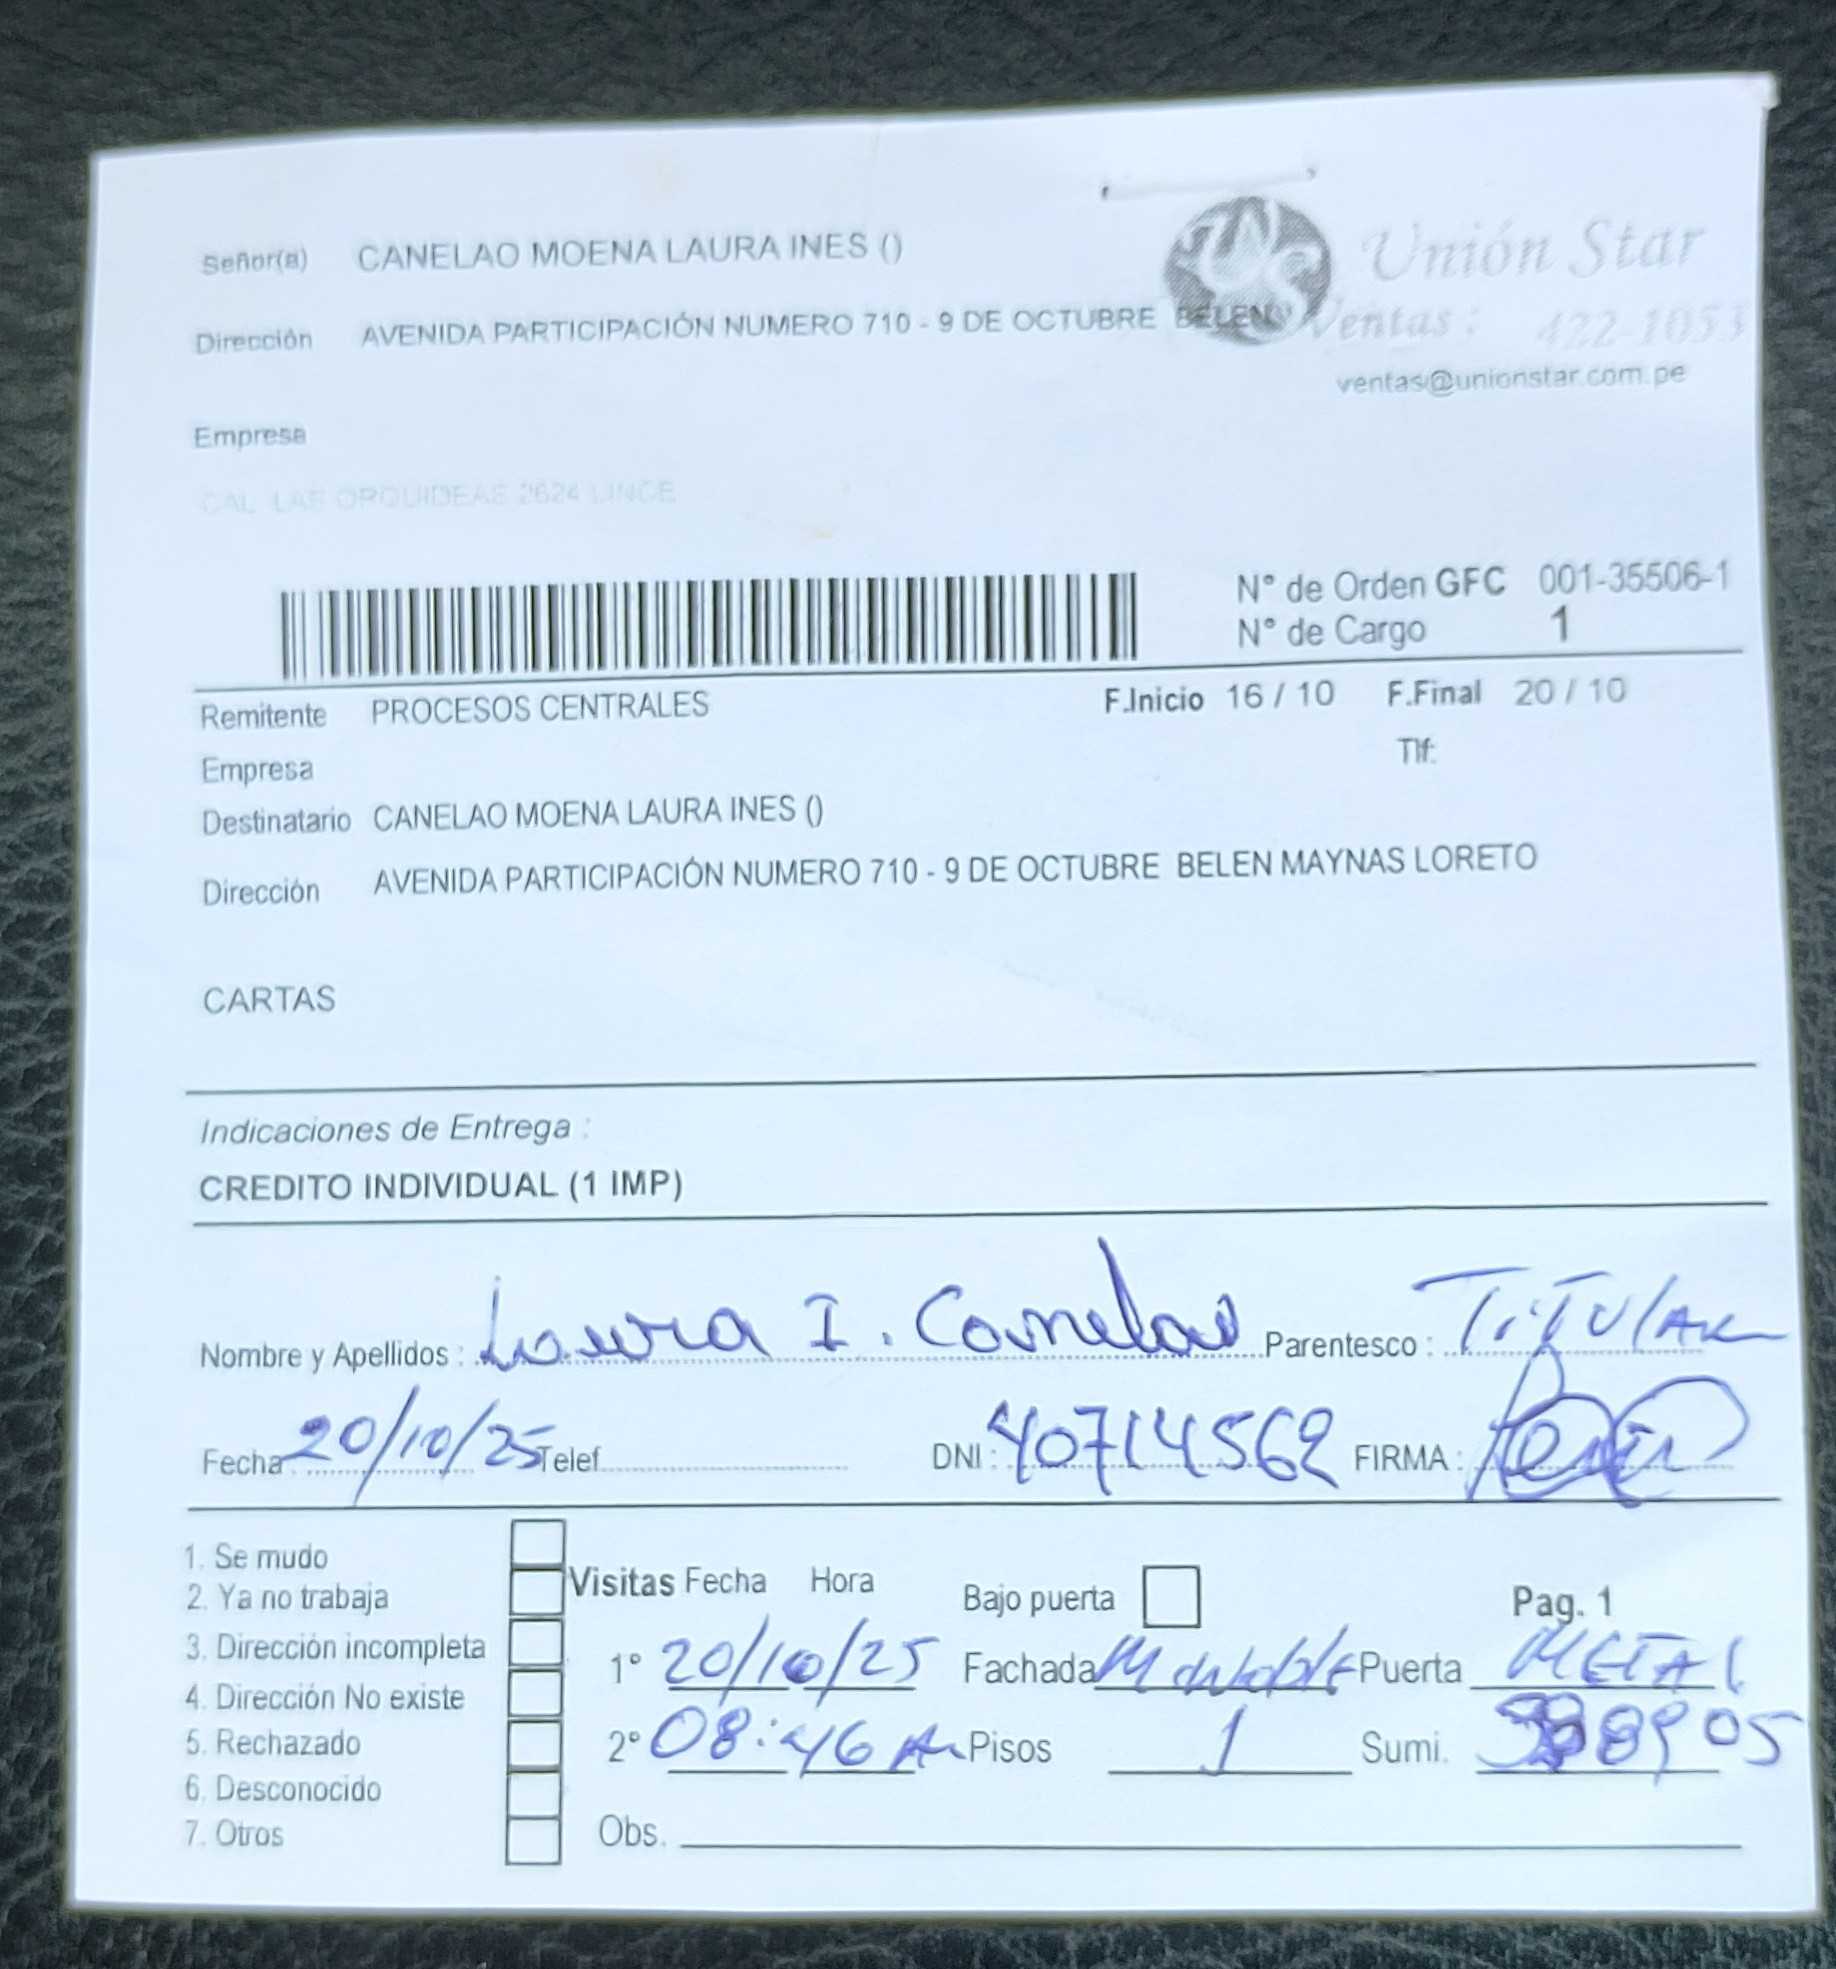 Señor(a) CANELAO MOENA LAURA INES ()
Unión Star
Dirección AVENIDA PARTICIPACIÓN NUMERO 710 - 9 DE OCTUBRE BELEN
Ventas : 422-1053
ventas@unionstar.com.pe
Empresa
CAL LAS ORQUIDEAS 2624 LINCE
N° de Orden GFC 001-35506-1
N° de Cargo 1
Remitente PROCESOS CENTRALES F.Inicio 16 / 10 F.Final 20 / 10
Empresa Tlf:
Destinatario CANELAO MOENA LAURA INES ()
Dirección AVENIDA PARTICIPACIÓN NUMERO 710 - 9 DE OCTUBRE BELEN MAYNAS LORETO
CARTAS
Indicaciones de Entrega :
CREDITO INDIVIDUAL (1 IMP)
Nombre y Apellidos : Laura I. Canelao Parentesco : TiTULAR
Fecha 20/10/25 Telef. DNI : 40714562 FIRMA :
1. Se mudo
2. Ya no trabaja
3. Dirección incompleta
4. Dirección No existe
5. Rechazado
6. Desconocido
7. Otros
Visitas Fecha Hora Bajo puerta Pag. 1
1° 20/10/25 Fachada Puerta METAL
2° 08:46 Am Pisos 1 Sumi.
Obs.